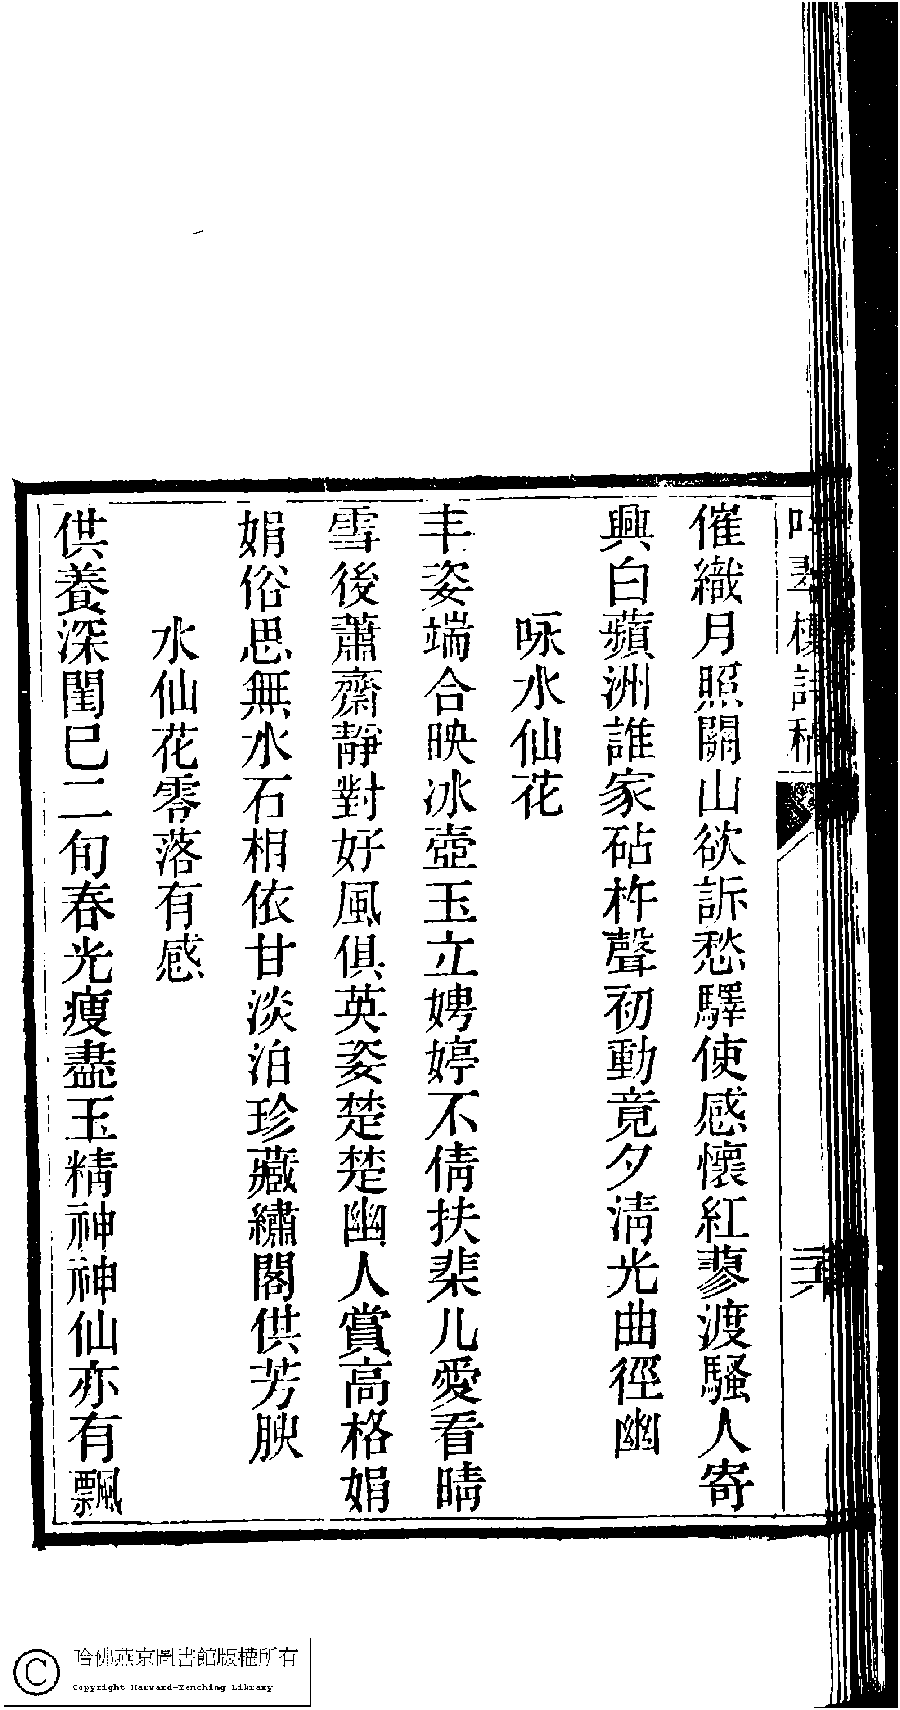 催織月照關山欲訴愁驛使感懷紅蓼渡騷人寄
興白蘋洲誰家砧杵聲初動竟夕清光曲徑幽
咏水仙花
丰姿端合映冰壺玉立娉婷不倩扶棐儿愛看晴
雪後蕭齋靜對好風俱英姿楚楚幽人賞高格娟
娟俗思無水石相依甘淡泊珍藏繡閣供芳腴
水仙花零落有感
供養深閨巳二旬春光瘦盡玉精神神仙亦有飄
哈佛燕京圖書館版權所有
Copyright Harvard-Yenching Library